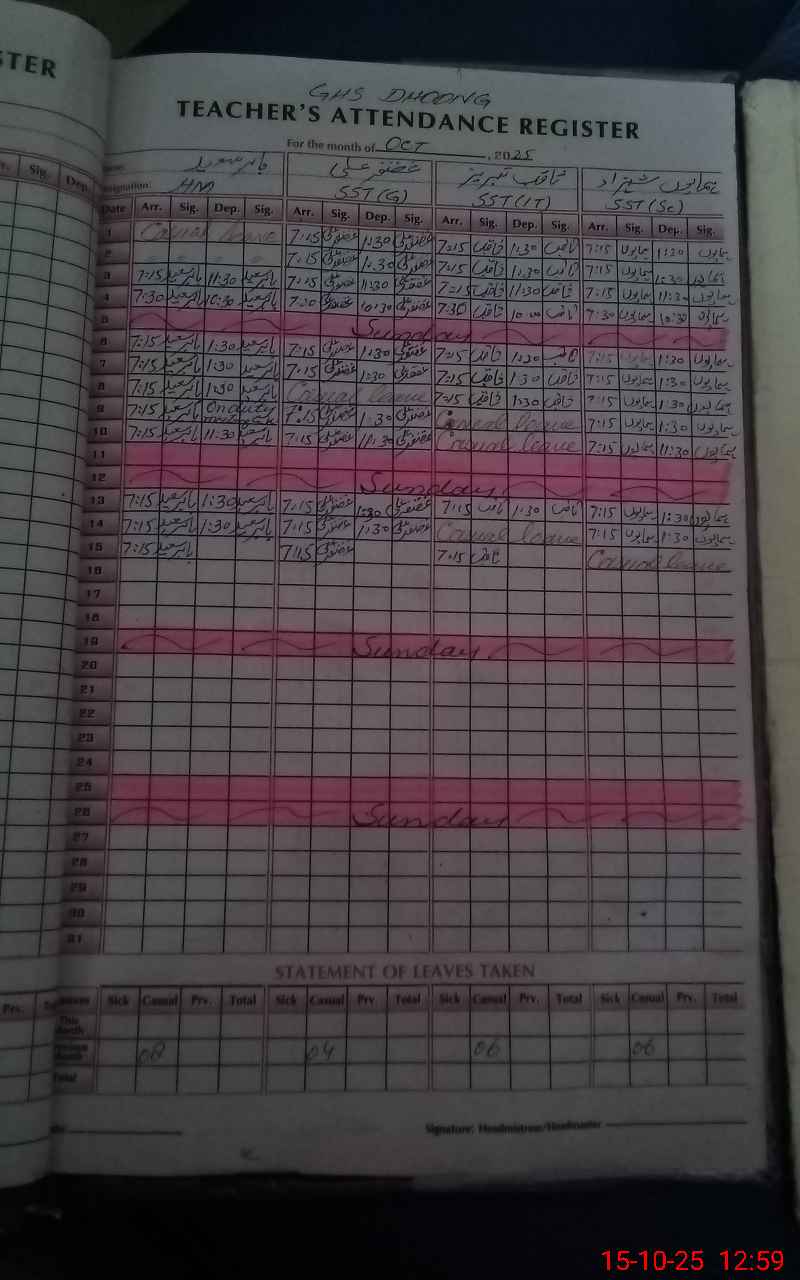 STER
GHS DHOONG
TEACHER'S ATTENDANCE REGISTER
For the month of OCT, 2025
بابر سعید غضنفر علی ثاقب تبریز ہمایوں شہزاد
Designation: HM SST(G) SST(IT) SST(Sc)
Sig. Dep. Date Arr. Sig. Dep. Sig. Arr. Sig. Dep. Sig. Arr. Sig. Dep. Sig. Arr. Sig. Dep. Sig.
1 Casual leave 7:15 1:30 7:15 1:30 ثاقب 7:15 ہمایوں 1:30 ہمایوں
2 " " " 7:15 1:30 7:15 ثاقب 1:30 ثاقب 7:15 ہمایوں 1:30 ہمایوں
3 7:15 بابر سعید 11:30 بابر سعید 7:15 11:30 7:15 ثاقب 11:30 ثاقب 7:15 ہمایوں 11:30 ہمایوں
4 7:30 بابر سعید 10:30 بابر سعید 7:30 10:30 7:30 ثاقب ثاقب 7:30 ہمایوں 10:30 ہمایوں
5 Sunday
6 7:15 بابر سعید 1:30 بابر سعید 7:15 1:30 7:15 ثاقب 1:30 ثاقب 7:15 ہمایوں 1:30 ہمایوں
7 7:15 بابر سعید 1:30 بابر سعید 7:15 1:30 7:15 ثاقب 1:30 ثاقب 7:15 ہمایوں 1:30 ہمایوں
8 7:15 بابر سعید 1:30 بابر سعید Casual leave 7:15 ثاقب 1:30 ثاقب 7:15 ہمایوں 1:30 ہمایوں
9 7:15 بابر سعید On duty 7:15 1:30 Casual leave 7:15 ہمایوں 1:30 ہمایوں
10 7:15 بابر سعید 11:30 بابر سعید 7:15 11:30 Casual leave 7:15 ہمایوں 11:30 ہمایوں
11
12 Sunday
13 7:15 بابر سعید 1:30 بابر سعید 7:15 1:30 7:15 ثاقب 1:30 ثاقب 7:15 ہمایوں 1:30 ہمایوں
14 7:15 بابر سعید 1:30 بابر سعید 7:15 1:30 Casual leave 7:15 ہمایوں 1:30 ہمایوں
15 7:15 بابر سعید 7:15 7:15 ثاقب Casual leave
16
17
18
19 Sunday
20
21
22
23
24
25
26 Sunday
27
28
29
30
31
STATEMENT OF LEAVES TAKEN
Prv. Sick Casual Prv. Total Sick Casual Prv. Total Sick Casual Prv. Total Sick Casual Prv. Total
This Month
08 04 06 06
Total
Signature: Headmistress/Headmaster
15-10-25 12:59